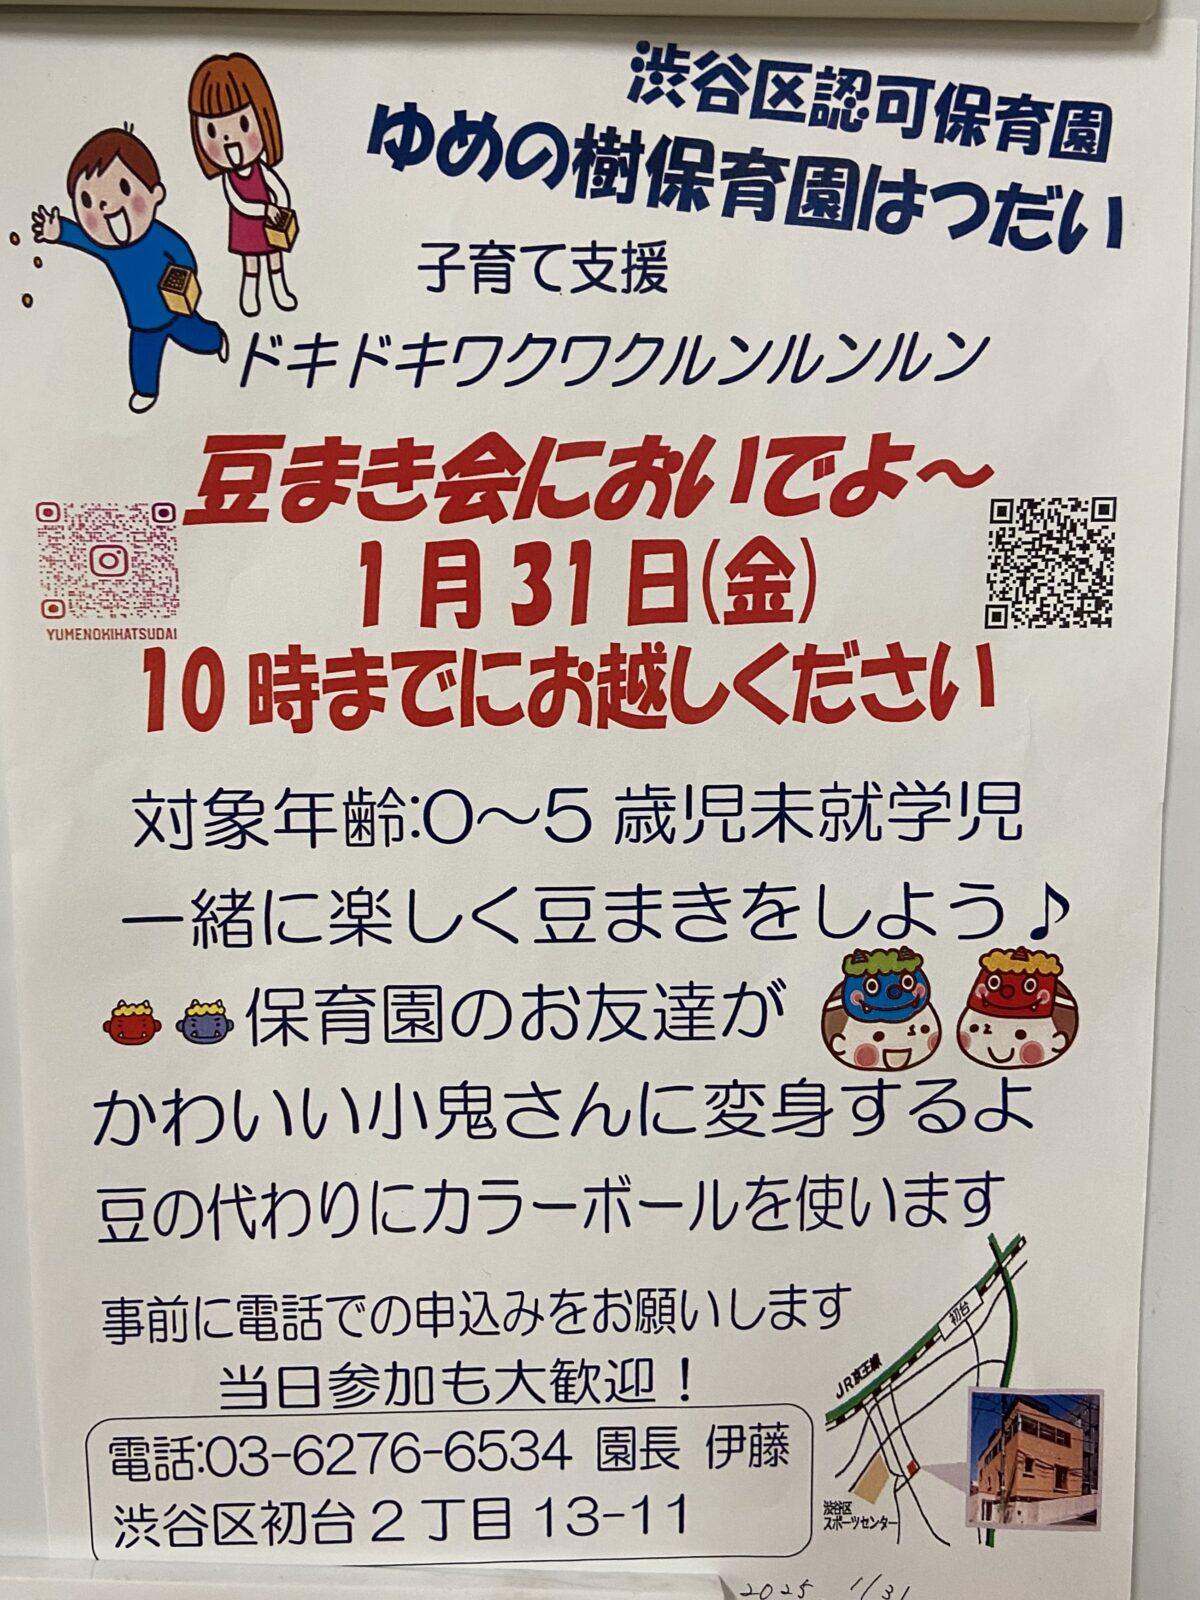 渋谷区認可保育園
ゆめの樹保育園はつだい
子育て支援
ドキドキワクワクルンルンルン
豆まき会においでよ～
1月31日(金)
YUMENOKIHATSUDAI
10時までにお越しください
対象年齢:0～5歳児未就学児
一緒に楽しく豆まきをしよう♪
保育園のお友達が
かわいい小鬼さんに変身するよ
豆の代わりにカラーボールを使います
事前に電話での申込みをお願いします
当日参加も大歓迎！
電話:03-6276-6534 園長 伊藤
渋谷区初台2丁目13-11
初台
JR京王線
渋谷区
スポーツセンター
2025 1/31